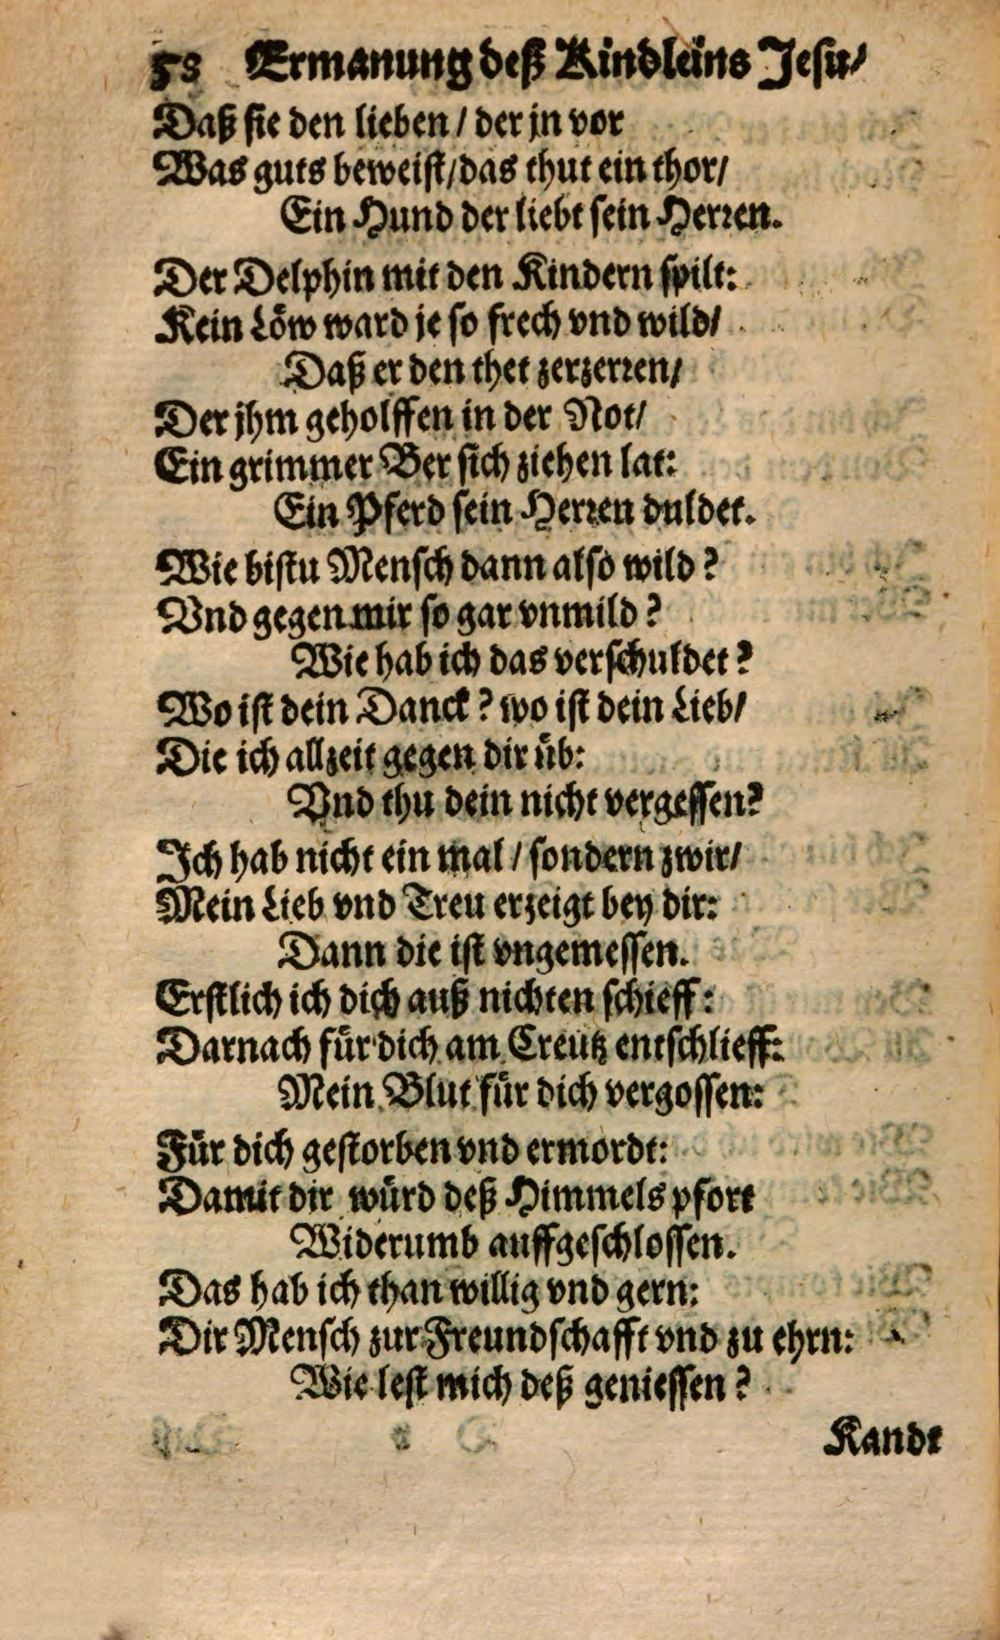 58 Ermanung deß Kindleins Jesu/
Daß sie den lieben / der jn vor
Was guts beweist/das thut ein thor/
Ein Hund der liebt sein Herren.
Der Delphin mit den Kindern spilt:
Kein Löw ward je so frech vnd wild/
Daß er den thet zerzerren/
Der jhm geholffen in der Not/
Ein grimmer Ber sich ziehen lat:
Ein Pferd sein Herren duldet.
Wie bistu Mensch dann also wild?
Vnd gegen mir so gar vnmild?
Wie hab ich das verschuldet?
Wo ist dein Danck? wo ist dein Lieb/
Die ich allzeit gegen dir üb:
Vnd thu dein nicht vergessen?
Ich hab nicht ein mal / sondern zwir/
Mein Lieb vnd Treu erzeigt bey dir:
Dann die ist vngemessen.
Erstlich ich dich auß nichten schieff:
Darnach für dich am Creutz entschlieff:
Mein Blut für dich vergossen:
Für dich gestorben vnd ermordt:
Damit dir würd deß Himmels pfort
Widerumb auffgeschlossen.
Das hab ich than willig vnd gern:
Dir Mensch zur Freundschafft vnd zu ehrn:
Wie lest mich deß geniessen?
Kandt